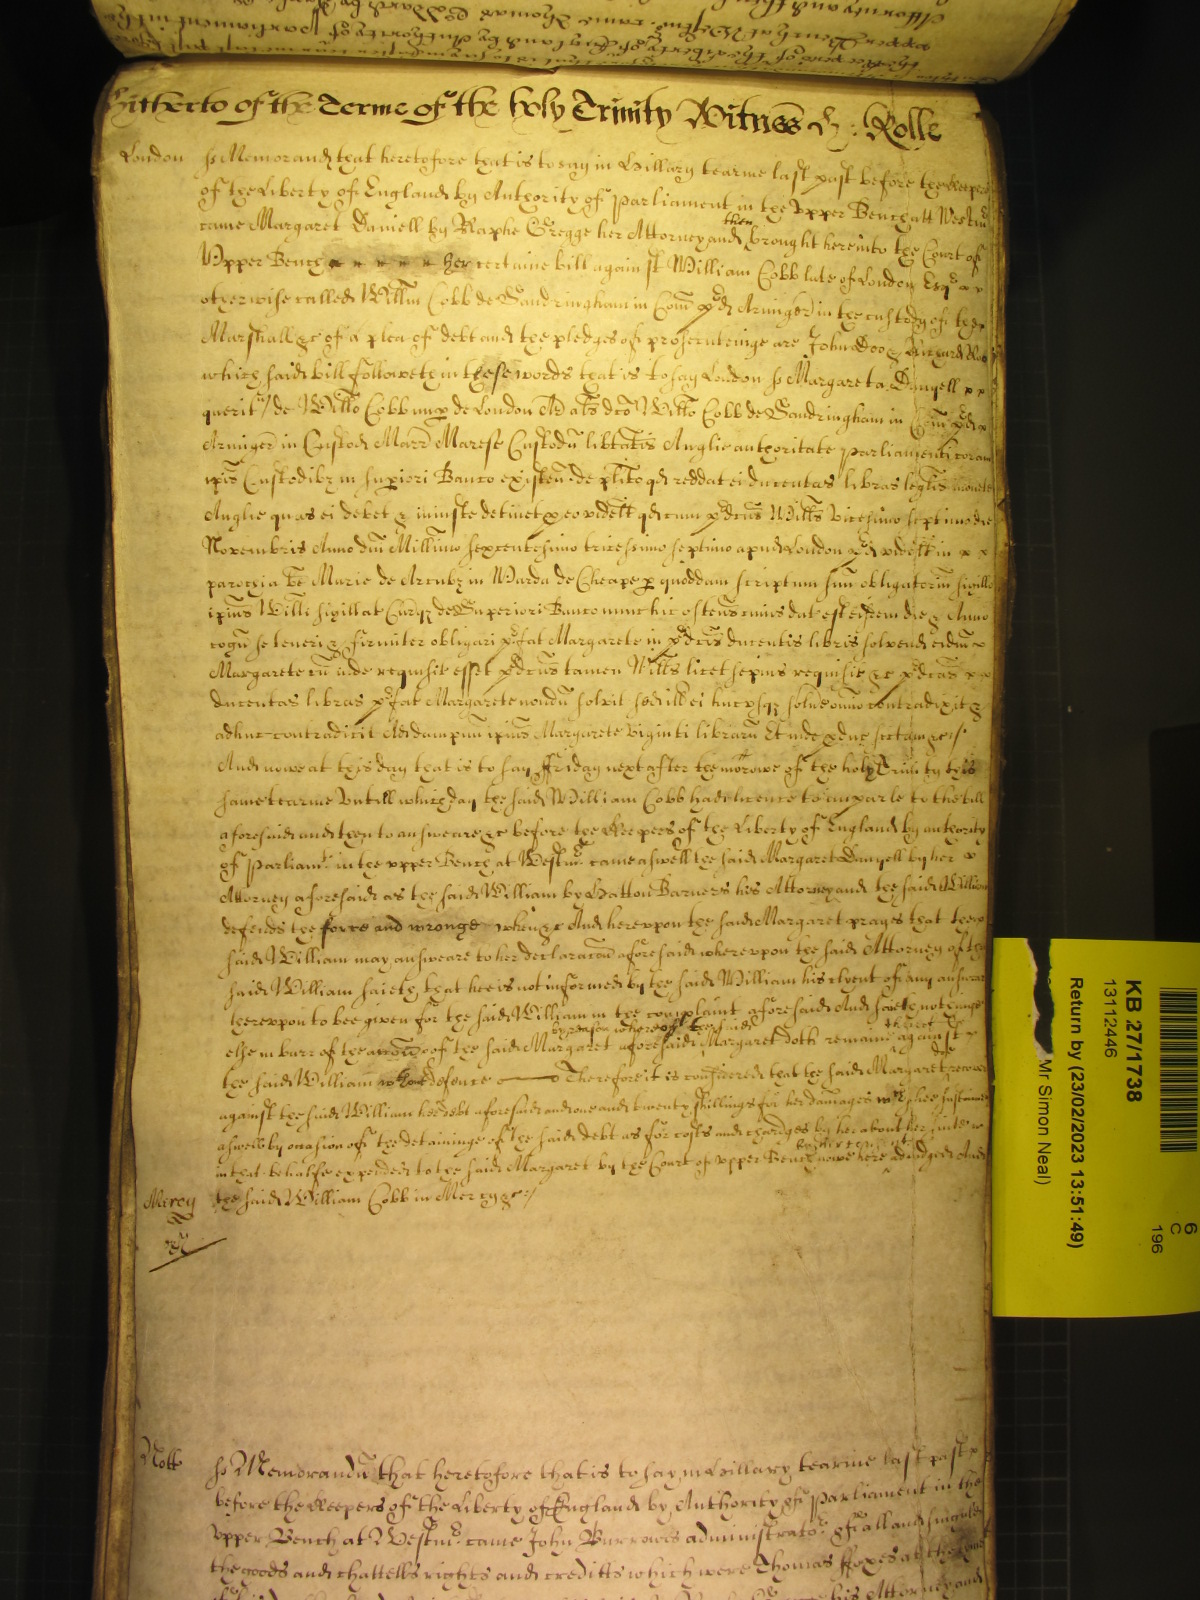 Hitherto of the Terme of the holy Trinity Witnes &c : Rolle
London ss Memorand that heretofore that is to say in Hillary tearme last past before the Keepers
of the Liberty of England by Authority of Parliament in the Upper Bench att Westm
came Margaret Daniell by Raphe Gregge her Attorney and then brought here into the Court of
Upper Bench her certaine bill against William Cobb late of London Esq
otherwise called Willm Cobb de Sandringham in Com pd Armiger in the custody of the
Marshall &c of a plea of debt and the pledges of prosecuteinge are John Doo & Richard Roo
which said bill followeth in these words that is to say London ss Margareta Danyell
querit de Willo Cobb nup de London Ar als dco Willo Cobb de Sandringham in Com pd
Armiger in Custod Marr Maresc Custodu libtatis Anglie authoritate Parliamenti coram
ipis Custodibz in supiori Banco existen de plito qd reddat ei ducentas libras legalis monete
Anglie quas ei debet & iniuste detinet p eo videlt qd cum pdcus Wills vicesimo septimo die
Novembris Anno dni Millimo sexcentesimo tricessimo septimo apud London pd videlt in
parochia be Marie de Arcubz in Warda de Cheape p quoddam scriptum suu obligatoriu sigillo
ipius Willi sigillat Curqz de Superiori Banco nunc hic ostens cuius dat est eisdem die & Anno
cogn se teneri & firmiter obligari pfat Margarete in pdcis ducentis libris solvend eidm
Margarete cu inde requisit esset pdcus tamen Wills licet sepius requisit &c pdcas
ducentas libras pfat Margarete nondu solvit sed ill ei hucusqz solve omnio contradixit &
adhuc contradicit Ad dampnu ipius Margarete viginti libraru Et inde pduc sectam &c
And nowe at this day that is to say ffriday next after the morowe of the holy Trinity this
same tearme untill which day the said William Cobb had licence to imparle to the bill
aforesaid and then to answeare &c before the Keepers of the Liberty of England by authority
of Parliamt in the upper Bench at Westmr came aswell the said Margaret Danyell by her
Attorney aforesaid as the said William by Hatton Barners his Attorney and the said William
defends the force and wronge when &c And hereupon the said Margaret prayes that the
said William may answeare to her declaracon aforesaid whereupon the said Attorney of the
said William saieth that hee is not informed by the said William his clyent of any answeare
thereupon to bee given for the said William in the complaint aforesaid And saieth nothinge
else in barr of the accon of the said Margaret aforesaid by reason whereof the said Margaret doth remaine against
the said William without defence Therefore it is considered that the said Margaret recover
against the said William her debt aforesaid and one and twenty shillings for her damages wch shee sustained
aswell by occasion of the detaininge of the said debt as for costs and chardges by her about her suite
in that behalfe expended to the said Margaret by the Court of upper Bench nowe here adiudged And
Mercy the said William Cobb in Mercy &c
Nott ss Memorandu that heretofore that is to say in Hillary tearme last past
before the Keepers of the Liberty of England by Authority of Parliament in the
upper Bench at Westmr came John Burrowes administrator of all and singuler
the goods and chattells rights and creditts which were Thomas ffoxes at the tyme
his Attorney and
KB 27/1738
13112446
Return by (23/02/2023 13:51:49)
Mr Simon Neal)
6
C
196